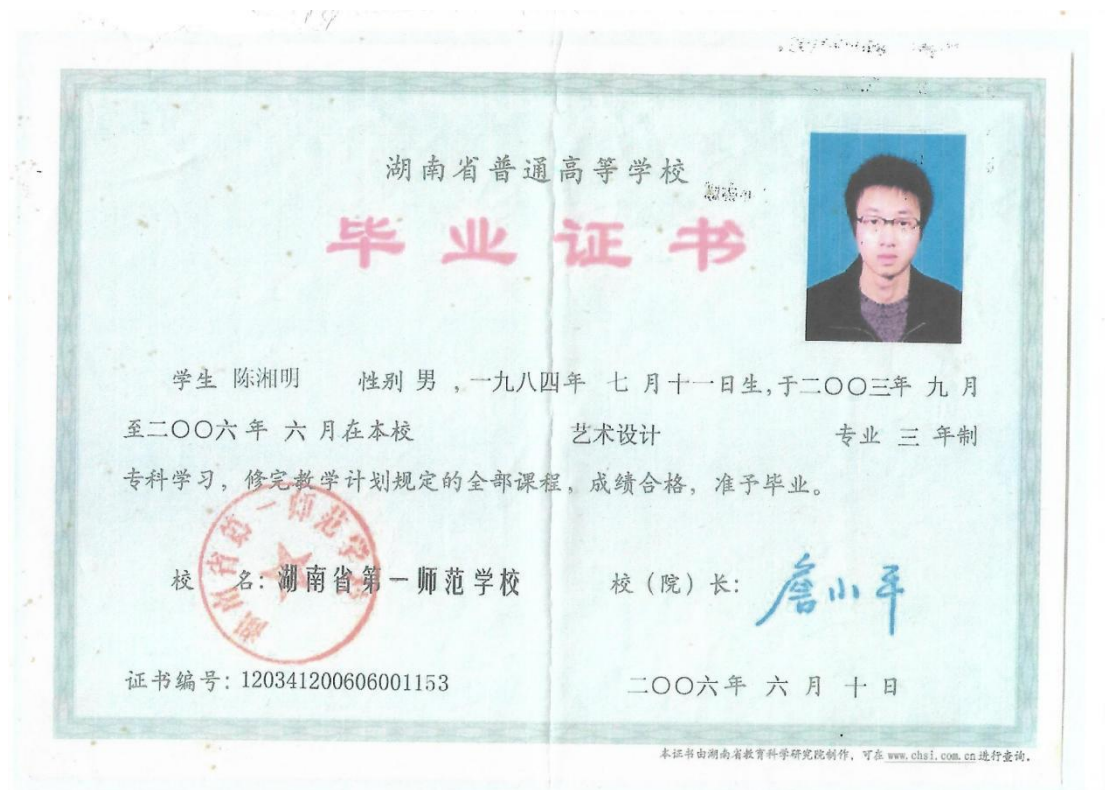 湖南省普通高等学校
毕业证书
学生 陈湘明 性别 男 ,一九八四年 七 月十一日生,于二〇〇三年 九 月
至二〇〇六 年 六 月在本校 艺术设计 专业 三 年制
专科学习,修完教学计划规定的全部课程,成绩合格,准予毕业。
湖南省第一师范学校
校 名:湖南省第一师范学校 校(院)长:詹小平
证书编号:120341200606001153 二〇〇六年 六 月 十 日
本证书由湖南省教育科学研究院制作,可在 www.chsi.com.cn 进行查询。